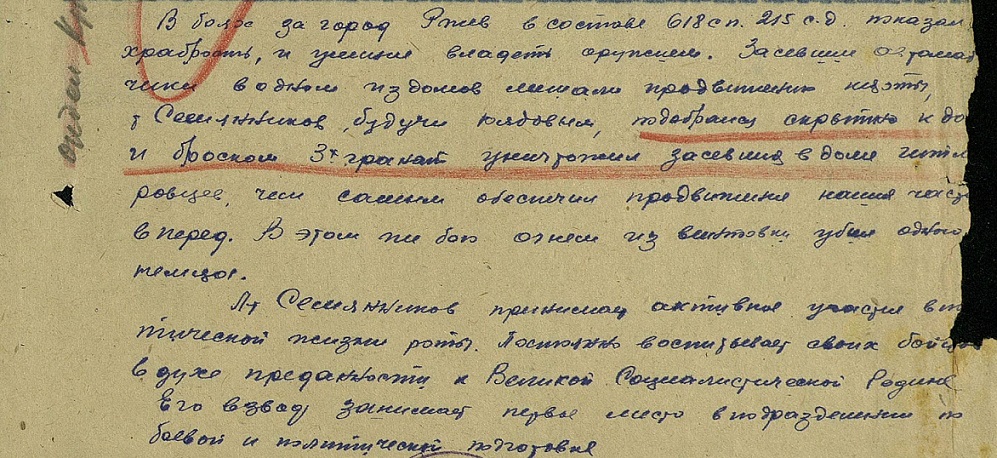 В боях за город Ржев в составе 618 сп. 215 с.д. показал
храбрость, и умение владеть оружием. Засевшие автомат
чики в одном из домов мешали продвижению пехоты,
т Семянников, будучи рядовым, подобрался скрытно к до
и броском 3х гранат уничтожил засевших в доме гитле
ровцев, чем самым обеспечил продвижение наших часте
вперед. В этом же бою огнем из винтовки убил одного
немца.
Л-т Семянников принимает активное участие в по
тической жизни роты. Постоянно воспитывает своих бойцов
в духе преданности к Великой Социалистической Родине
Его взвод занимает первое место в подразделении по
боевой и политической подготовке
орден Кр